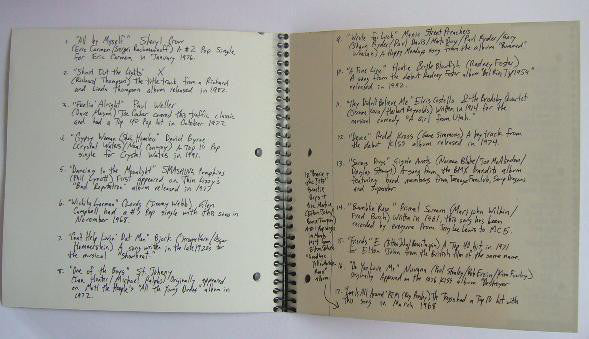 1. "All by Myself" Sheryl Crow
(Eric Carmen/Sergei Rachmaninoff) A #2 Pop Single
for Eric Carmen in January 1976.
2. "Shoot Out the Lights" X
(Richard Thompson) The title track from a Richard
and Linda Thompson album released in 1982.
3. "Feelin' Alright" Paul Weller
(Dave Mason) Joe Cocker covered this traffic classic
and had a Top 40 Pop hit in October 1972
4. "Gypsy Woman (She's Homeless)" David Byrne
(Crystal Waters/Neal Conway) A Top 10 Pop
single for Crystal Waters in 1991.
5. "Dancing in the Moonlight" SMASHING Pumpkins
(Phil Lynott) First appeared on Thin Lizzy's
"Bad Reputation" album released in 1977.
6. "Wichita Lineman" (Jimmy Webb) Glen
Campbell had a #3 Pop single with this song in
November 1968.
7. "Can't Help Lovin' Dat Man" Bjork
Hammerstein) A song written in the late 1920s for
the musical "Showboat".
8. "One of the Boys" St. Johnny
(Ian Hunter/Michael Ralphs) Originally appeared
on Mott the Hoople's "All the Young Dudes" album in
1972.
9. "Wrote for Luck" Manic Street Preachers
(Shaun Ryder/Paul Davis/Mark Day/Paul Ryder/Gary
Whelan) A Happy Mondays song from the album "Bummed"
10. "A Fine Line" Hootie & the Blowfish (Radney Foster)
A song from the debut Radney Foster album "Del Rio, TX 1959"
released in 1992.
11. Elvis Costello & the Brodsky Quartet
Written in 1954 for the
musical comedy "A Girl from Utah."
12. "Deuce" Redd Kross (Gene Simmons) A key track from
the debut KISS album released in 1974.
13. Gigolo Aunts (Norman Blake/Joe McAlinden/
A song from the BMX Bandits album
featuring band members from Teenage Fanclub, Soup Dragons
and Superstar.
14. "Ramblin' Rose" Primal Scream (Marijohn Wilkin/
Fred Burch) Written in 1961, this song has been
recorded by everyone from Jerry Lee Lewis to MC5.
15. "Friends" E (Elton John/Bernie Taupin) A Top 40 hit in 1971
for Elton John from the British film of the same name.
16. "Do You Love Me" Nirvana (Paul Stanley/Bob Ezrin/Kim Fowley)
Originally Appeared on the 1976 KISS album "Destroyer"
17. REM
this song in March 1968